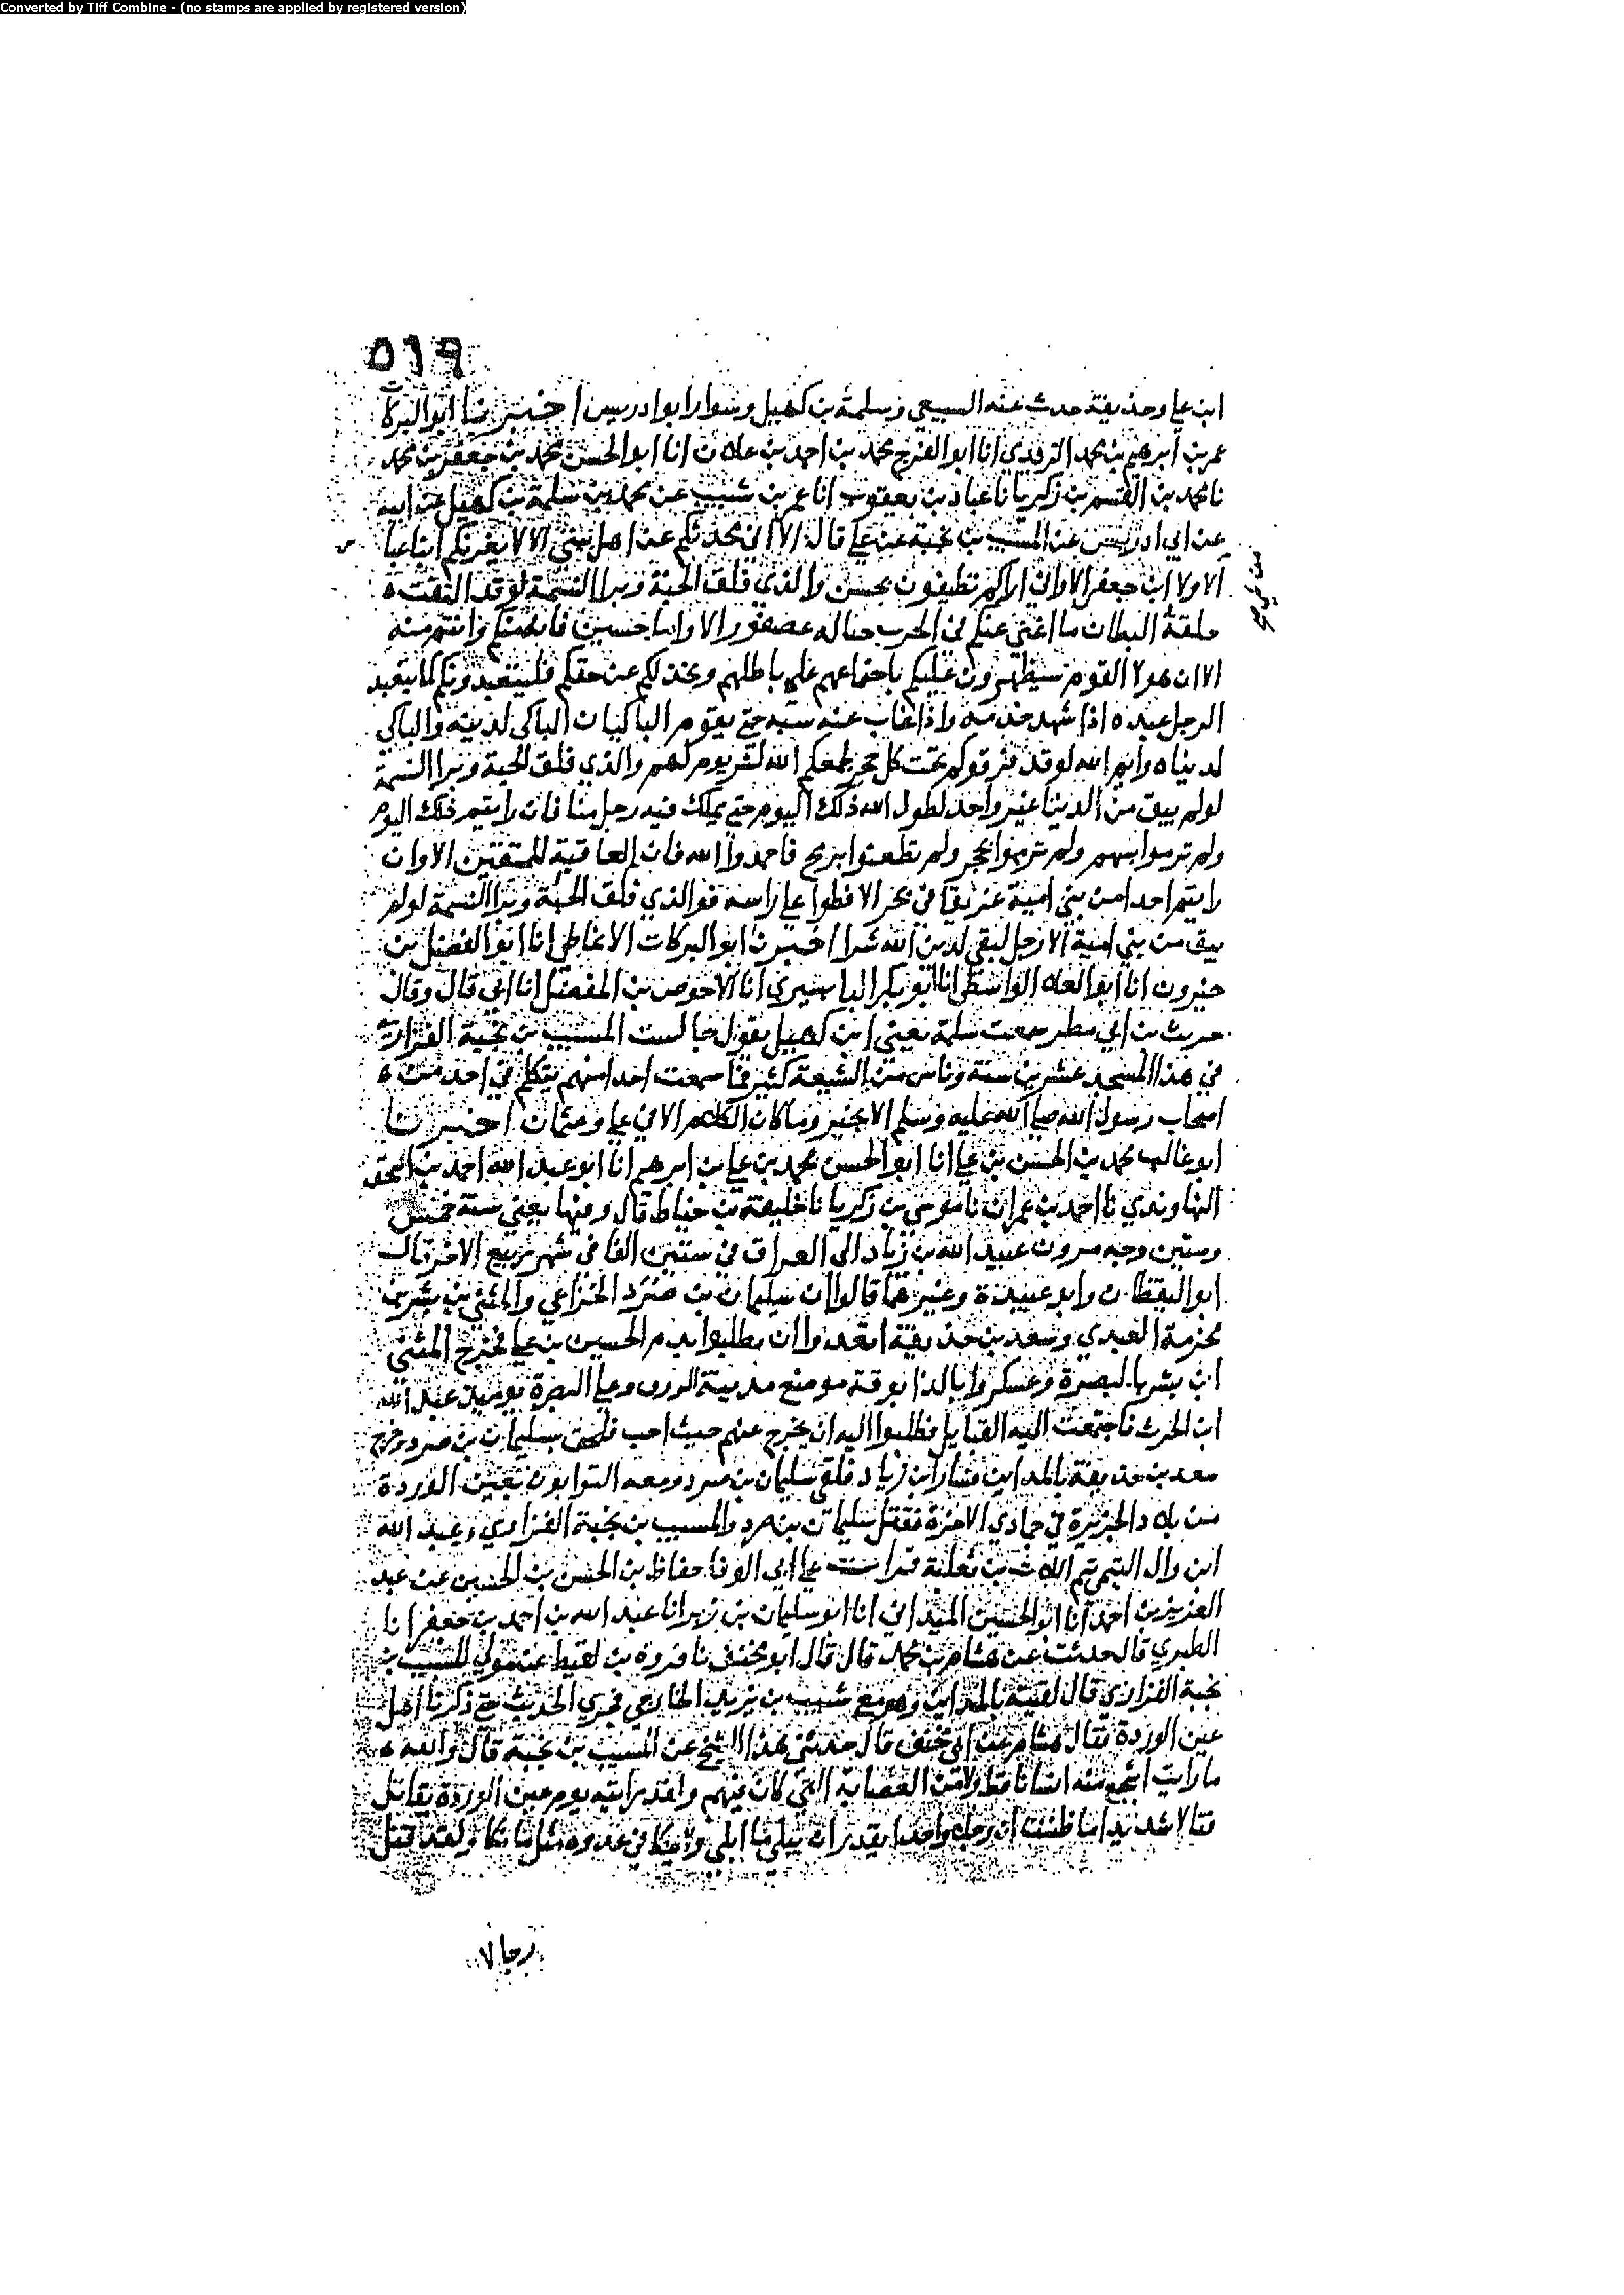 Converted by Tiff Combine - (no stamps are applied by registered version)
٥١٩
ابن علي وحذيفة حدث عنه السبيعي وسلمة بن كهيل وسوار ابو ادريس اخبرنا ابو البركات
عمر بن ابرهيم بن محمد الزيدي انا ابو الفرج محمد بن احمد بن علان انا ابو الحسن محمد بن جعفر بن محمد
نا محمد بن القسم بن زكريا نا عباد بن يعقوب انا عمر بن شبيب عن محمد بن سلمة بن كهيل عن ابيه
عن ابي ادريس عن المسيب بن نجبة عن علي قال الا اني محدثكم عن اهل بيتي الا لا يغرنكم ابنا عبا
الا ولا ابن جعفر الا واني اراكم تطيفون بحسن والذي فلق الحبة وبرا النسمة لو قد التقت ه
حلقة البطان ما اغنى عنكم في الحرب حباله عصفور الا واما حسين فانه منكم وانتم منه
الا ان هولا القوم سيظهرون عليكم باجتماعهم على باطلهم وتخذلكم عن حقكم فليتعبدونكم كما يتعبد
الرجل عبده اذا شهد خدمه واذا غاب عنه سبه حتى يقوم الباكيان الباكي لدينه والباكي
لدنياه وايم الله لو قد فرقوكم تحت كل حجر لجمعكم الله لشر يوم لهم والذي فلق الحبة وبرا النسمة
لو لم يبق من الدنيا غير واحد لطول الله ذلك اليوم حتى يملك فيه رجل منا فان رايتم ذلك اليوم
ولم ترموا بسهم ولم ترموا بحجر ولم تطعنوا برمح فاحمدوا الله فان العاقبة للمتقين الا وان
رايتم احدا من بني امية غريقا في بحر الا فطوا على راسه فوالذي فلق الحبة وبرا النسمة لو لم
يبق من بني امية الا رجل لبغى لدين الله شرا اخبرنا ابو البركات الانماطي انا ابو الفضل بن
خيرون انا ابو العلا الواسطي انا ابو بكر البابسيري انا الاحوص بن المفضل انا ابي قال وقال
حريث بن ابي مطر سمعت سلمة يعني ابن كهيل يقول جالست المسيب بن نجبة الفزاري
في هذا المسجد عشرين سنة وناس من الشيعة كثير فما سمعت احدا منهم يتكلم في احد من ه
اصحاب رسول الله صلى الله عليه وسلم الا بخير وما كان الكلام الا في علي وعثمان اخبرنا
ابو غالب محمد بن الحسن بن علي انا ابو الحسن محمد بن علي بن ابرهيم انا ابو عبد الله احمد بن اسحق
النهاوندي نا احمد بن عمران نا موسى بن زكريا نا خليفة بن خياط قال وفيها يعني سنة خمس
وستين وجه مرون عبيد الله بن زياد الى العراق في ستين الفا في شهر ربيع الاخر قال
ابو اليقظان وابو عبيدة وغيرهما قالوا ان سليمان بن صرد الخزاعي والمثنى بن بشر بن
مخرمة العبدي وسعد بن حذيفة اتعدوا ان يطلبوا بدم الحسين بن علي فخرج المثنى
ابن بشر بالبصرة وعسكروا بالدابوقة موضع مدينة الرزق وعلى البصرة يوميذ عبد الله
ابن الحرث فاجتمعت اليه القبايل فطلبوا اليه ان يخرج عنهم حيث احب فلحق بسليمان بن صرد وخرج
سعد بن حذيفة بالمداين فسار ابن زياد فلقي سليمان بن صرد ومعه التوابون بعين الوردة
من بلاد الجزيرة في جمادي الاخرة فقتل سليمان بن صرد والمسيب بن نجبة الفزاري وعبد الله
ابن وال التيمي تيم اللات بن ثعلبة قرات على ابي الوفا حفاظ بن الحسن بن الحسين عن عبد
العزيز بن احمد انا ابو الحسين الميداني انا ابو سليمان بن زبر انا عبد الله بن احمد بن جعفر انا
الطبري قال حدثت عن هشام بن محمد قال قال ابو مخنف نا فروة بن لقيط عن مولى للمسيب بن
نجبة الفزاري قال لقيته بالمداين وهو مع شبيب بن يزيد الخارجي فجري الحديث حتى ذكرنا اهل
عين الوردة فقال هشام عن ابي مخنف قال حدثني هذا الشيخ عن المسيب بن نجبة قال والله ه
ما رايت اشجع منه انسانا قط ولا من العصابة التي كان فيهم ولقد رايته يوم عين الوردة يقاتل
قتالا شديدا ما ظننت ان رجلا واحدا يقدر ان يبلي ما ابلي ولا ينكا في عدوه مثل ما نكا ولقد قتل
رجالا